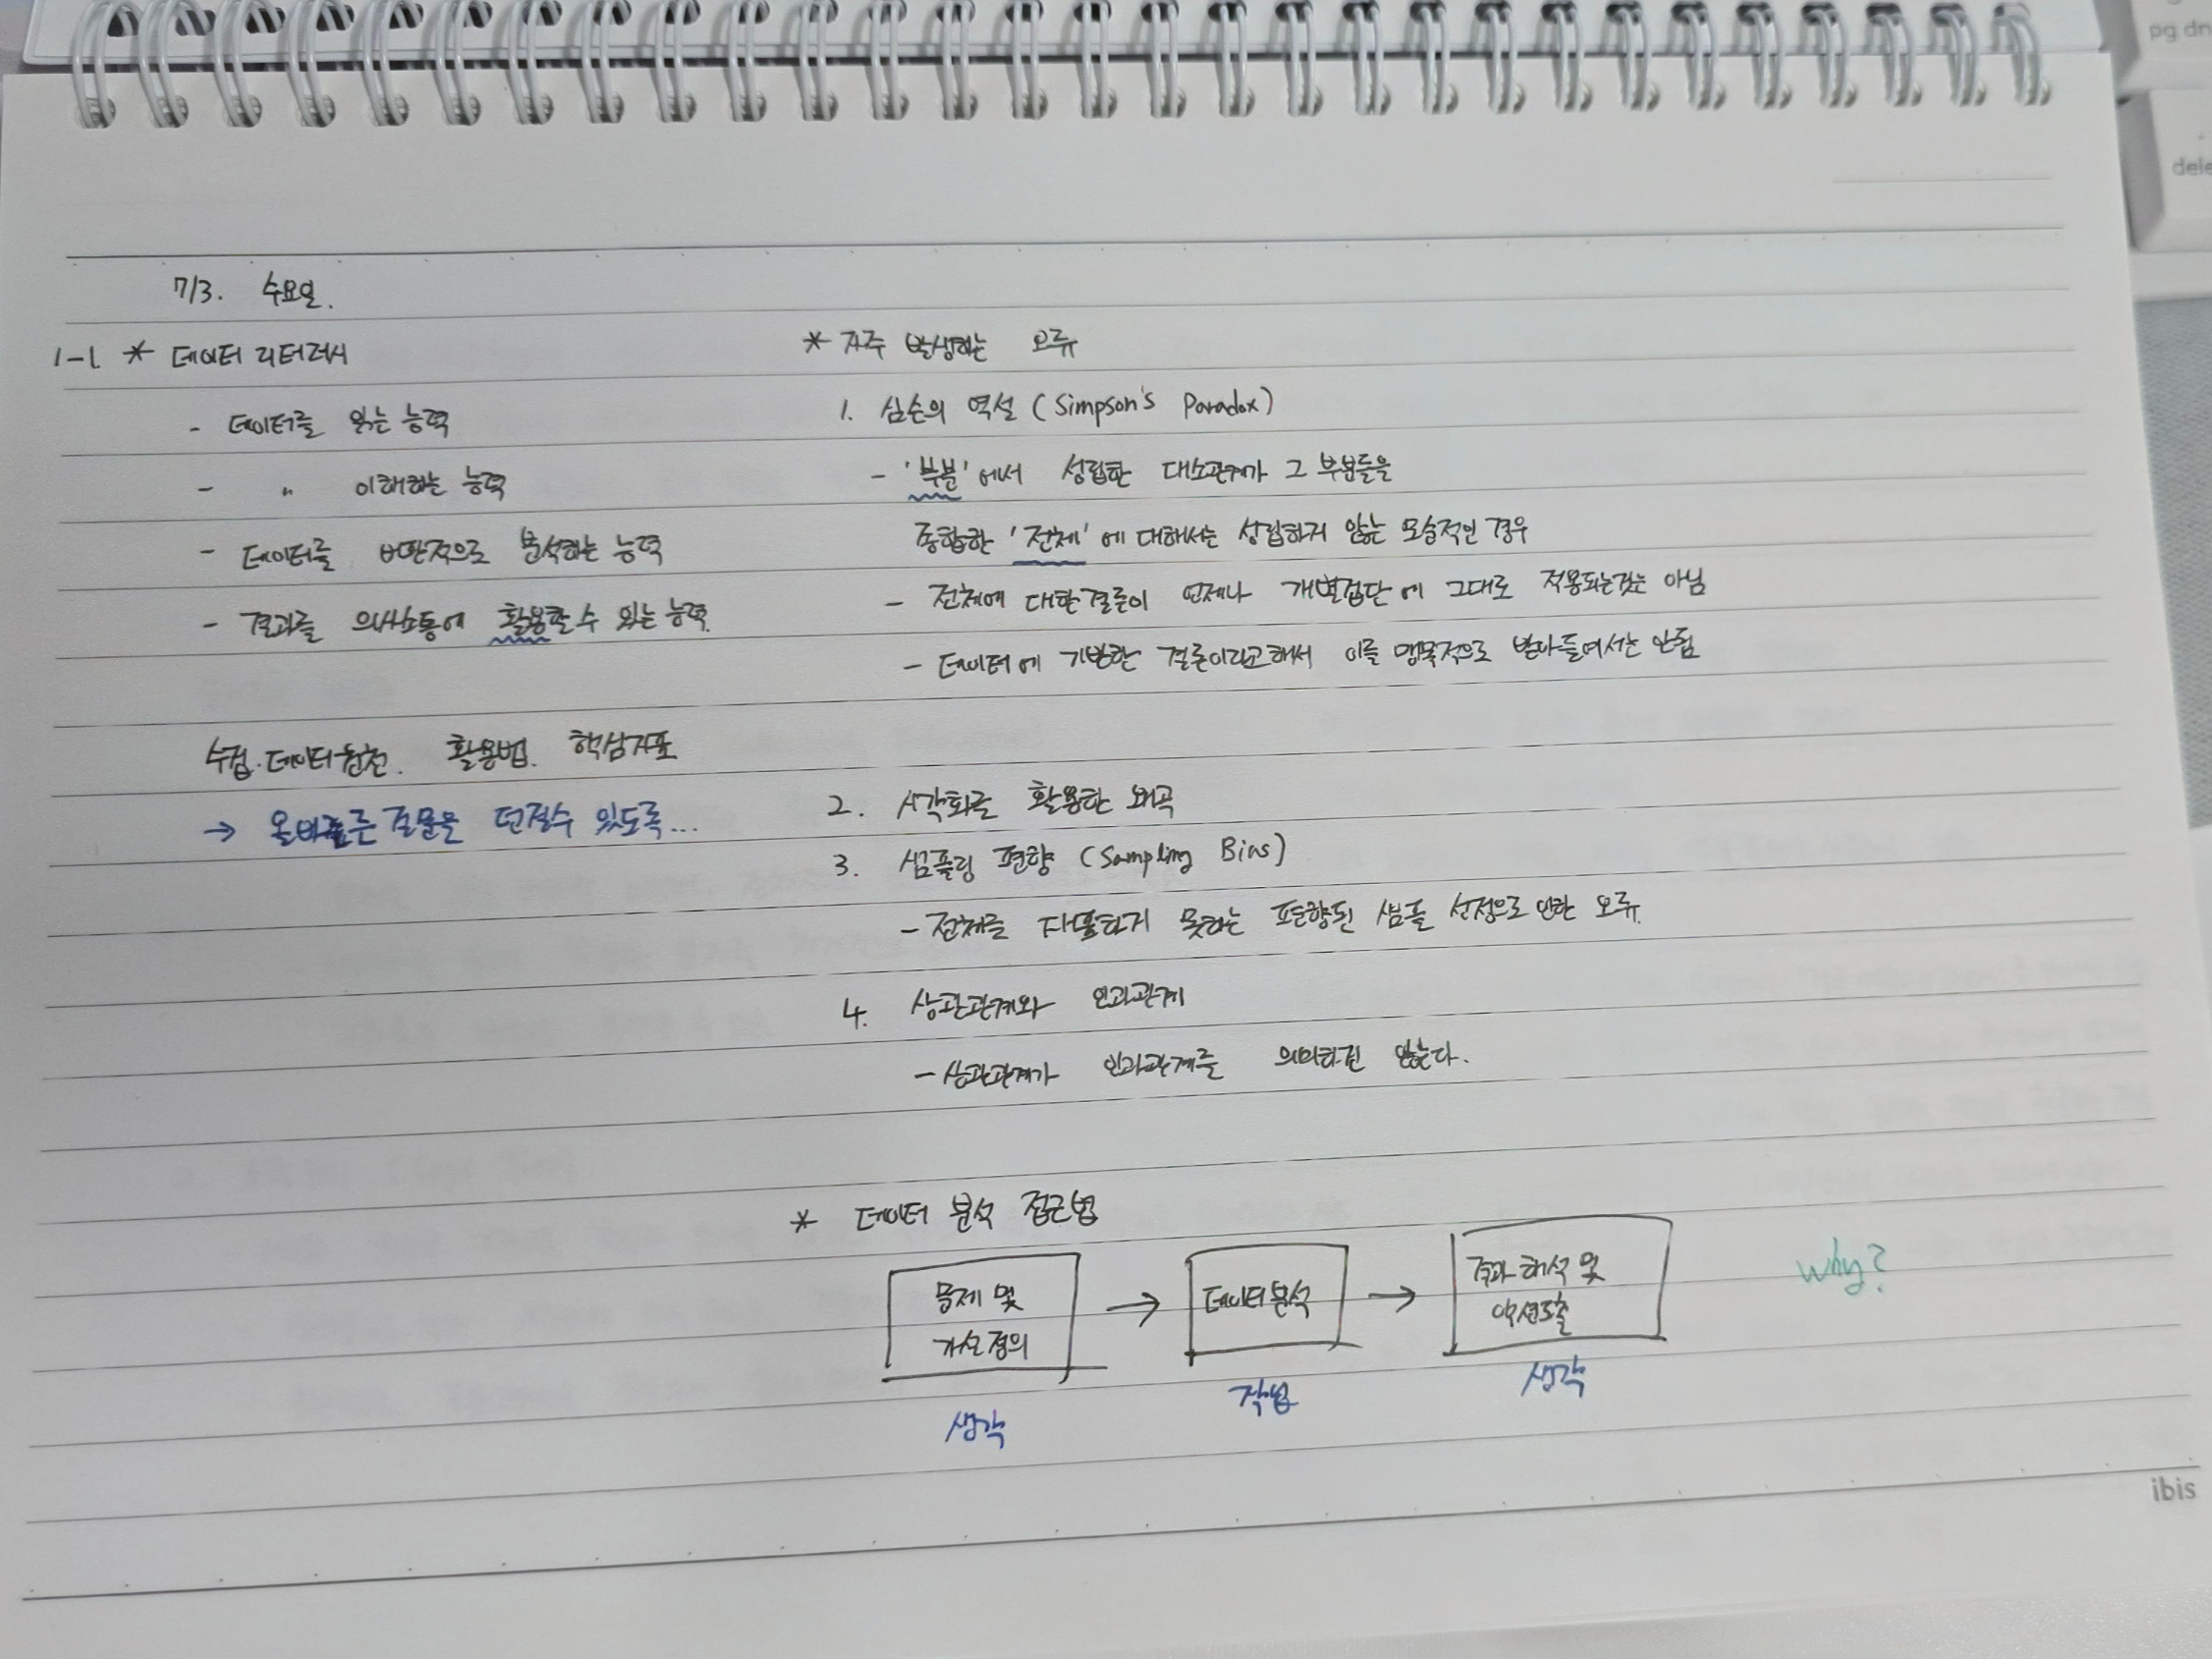 7/3. 수요일.
1-1. * 데이터 리터러시
- 데이터를 읽는 능력
- 〃 이해하는 능력
- 데이터를 비판적으로 분석하는 능력
- 결과를 의사소통에 활용할 수 있는 능력.
수집. 데이터원천. 활용법. 핵심지표
→ 올바른 질문을 던질수 있도록...
* 자주 발생하는 오류
1. 심슨의 역설 (Simpson's Paradox)
- '부분'에서 성립한 대소관계가 그 부분들을
종합한 '전체'에 대해서는 성립하지 않는 모순적인 경우
- 전체에 대한 결론이 언제나 개별집단에 그대로 적용되는것는 아님
- 데이터에 기반한 결론이라고해서 이를 맹목적으로 받아들여서는 안됨
2. 시각화를 활용한 왜곡
3. 샘플링 편향 (Sampling Bias)
- 전체를 못하는 편향된 샘플 선정으로 인한 오류.
4. 상관관계와 인과관계
- 상관관계가 인과관계를 의미하진 않는다.
* 데이터 분석 접근법
문제 및
가설 정의
→
데이터 분석
→
결과 해석 및
액션도출
why?
생각
작업
생각
ibis
pg dn
dele